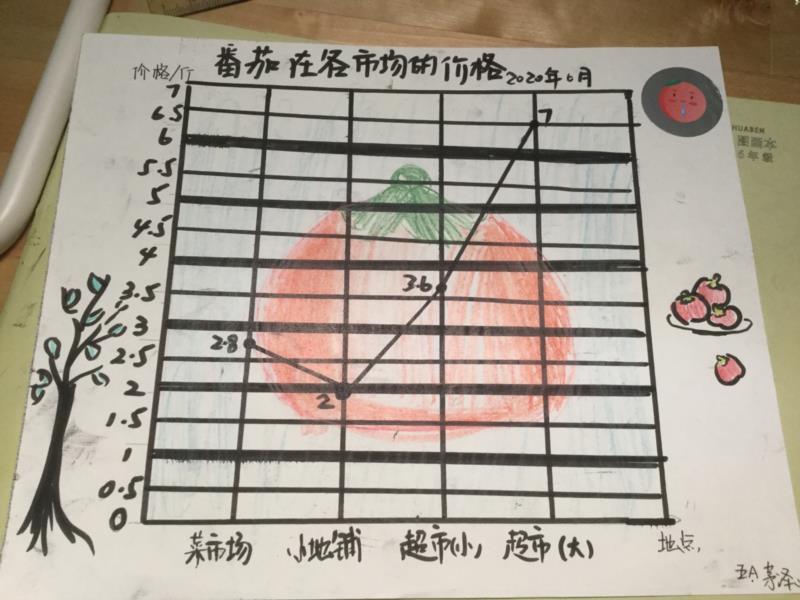 番茄在各市场的价格2020年6月
价格/斤
7
6.5
6
5.5
5
4.5
4
3.5
3
2.5
2
1.5
1
0.5
0
7
3.6
2.8
2
菜市场 小地铺 超市(小) 超市(大) 地点
五A 茅泽
HUABEN
图画本